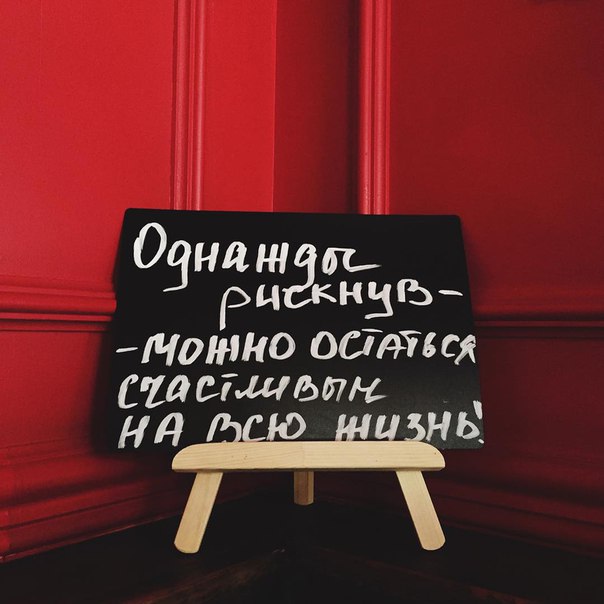 Однажды
рискнув-
-можно остаться
счастливым
на всю жизнь!